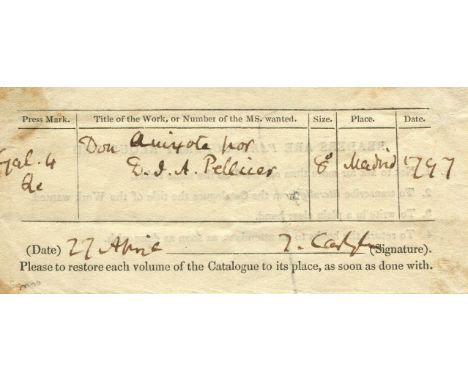 Press Mark. Title of the Work, or Number of the MS. wanted. Size. Place. Date.
Gal. 4 Don Quixote por
Qe D. J. A. Pellicer 8o Madrid 1797
(Date) 27 April T. Carlyle (Signature).
Please to restore each volume of the Catalogue to its place, as soon as done with.